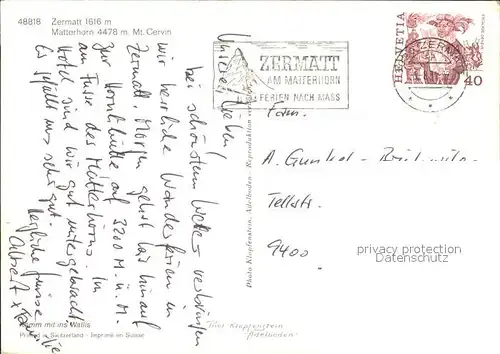 48818 Zermatt 1616 m
Matterhorn 4478 m. Mt. Cervin
ZERMATT
AM MATTERHORN
FERIEN NACH MASS
HELVETIA
40
Unsere Lieben!
bei schönstem Wetter verbringen
wir herrliche Wanderferien in
Zermatt. Morgen gehts hinauf
zur Hörnlihütte auf 3200 M. ü. M.
am Fusse des Matterhorns. Im
Hotel sind wir gut untergebracht.
Es gefällt uns sehr gut.
Herzliche Grüsse
Albert + Familie
Fam.
A. Gunkel-
Tellstr.
9400
Photo Klopfenstein, Adelboden - Reproduktion verboten
Komm mit ins Wallis
Printed in Switzerland - Imprimé en Suisse
Phot Klopfenstein
Adelboden
privacy protection
Datenschutz